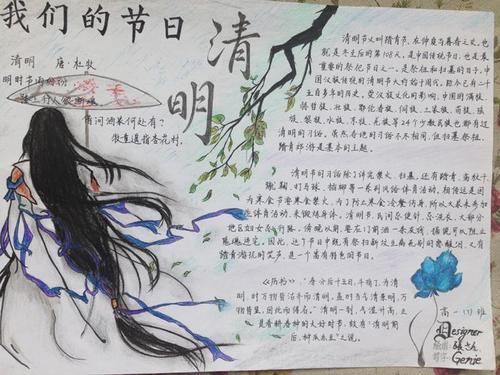 我们的节日
清明
清明 唐·杜牧
清明时节雨纷纷
路上行人欲断魂
借问酒家何处有?
牧童遥指杏花村.
清明节又叫踏青节,在仲春与暮春之交,也
就是冬至后的第108天,是中国传统节日,也是最
重要的祭祀节日之一,是祭祖和扫墓的日子.中
国汉族传统的清明节大约始于周代,距今已有二千
五百多年的历史,受汉族文化的影响,中国的满族、
赫哲族、壮族、鄂伦春族、侗族、土家族、苗族、瑶
族、黎族、水族、京族、羌族等24个少数民族也都有过
清明的习俗。虽然各地习俗不尽相同,但扫墓祭祖、
踏青郊游是基本的主题。
清明节的习俗除了讲究禁火、扫墓,还有踏青、荡秋千
蹴鞠、打马球、插柳等一系列风俗体育活动。相传这是因
为寒食节要寒食禁火,为了防止寒食冷餐伤身,所以大家来参加
些体育活动,来锻炼身体。清明节,
《历书》:"春分后十五日,斗指丁,为清
明,时万物皆洁齐而清明,盖时当气清景明,万
物皆显,因此而得名。"清明一到,气温升高,正
是春耕春种的大好时节,故有"清明前
后,种瓜点豆"之说。
高一(11)班
Designer
Genie